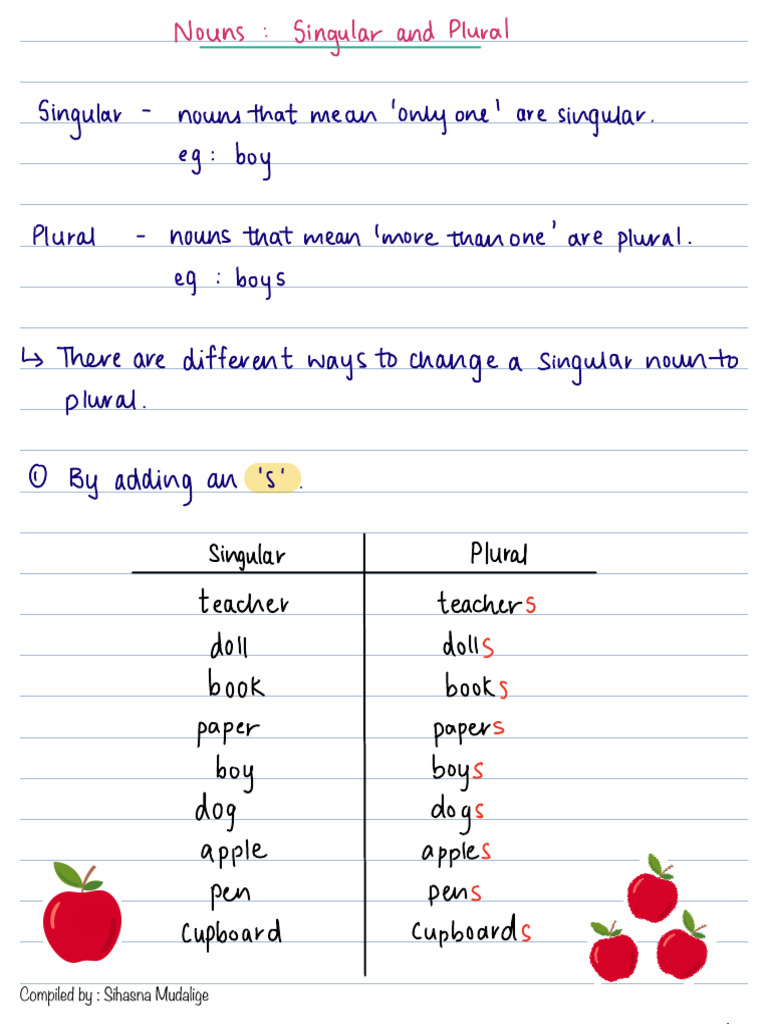 Nouns : Singular and Plural
Singular - nouns that mean 'only one' are singular.
eg : boy
Plural - nouns that mean 'more than one' are plural.
eg : boys
↳ There are different ways to change a singular noun to
plural.
① By adding an 's'.
Singular Plural
teacher teachers
doll dolls
book books
paper papers
boy boys
dog dogs
apple apples
pen pens
cupboard cupboards
Compiled by : Sihasna Mudalige